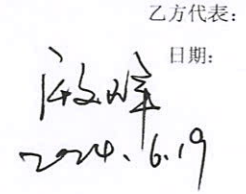 乙方代表：
日期：
2024.6.19